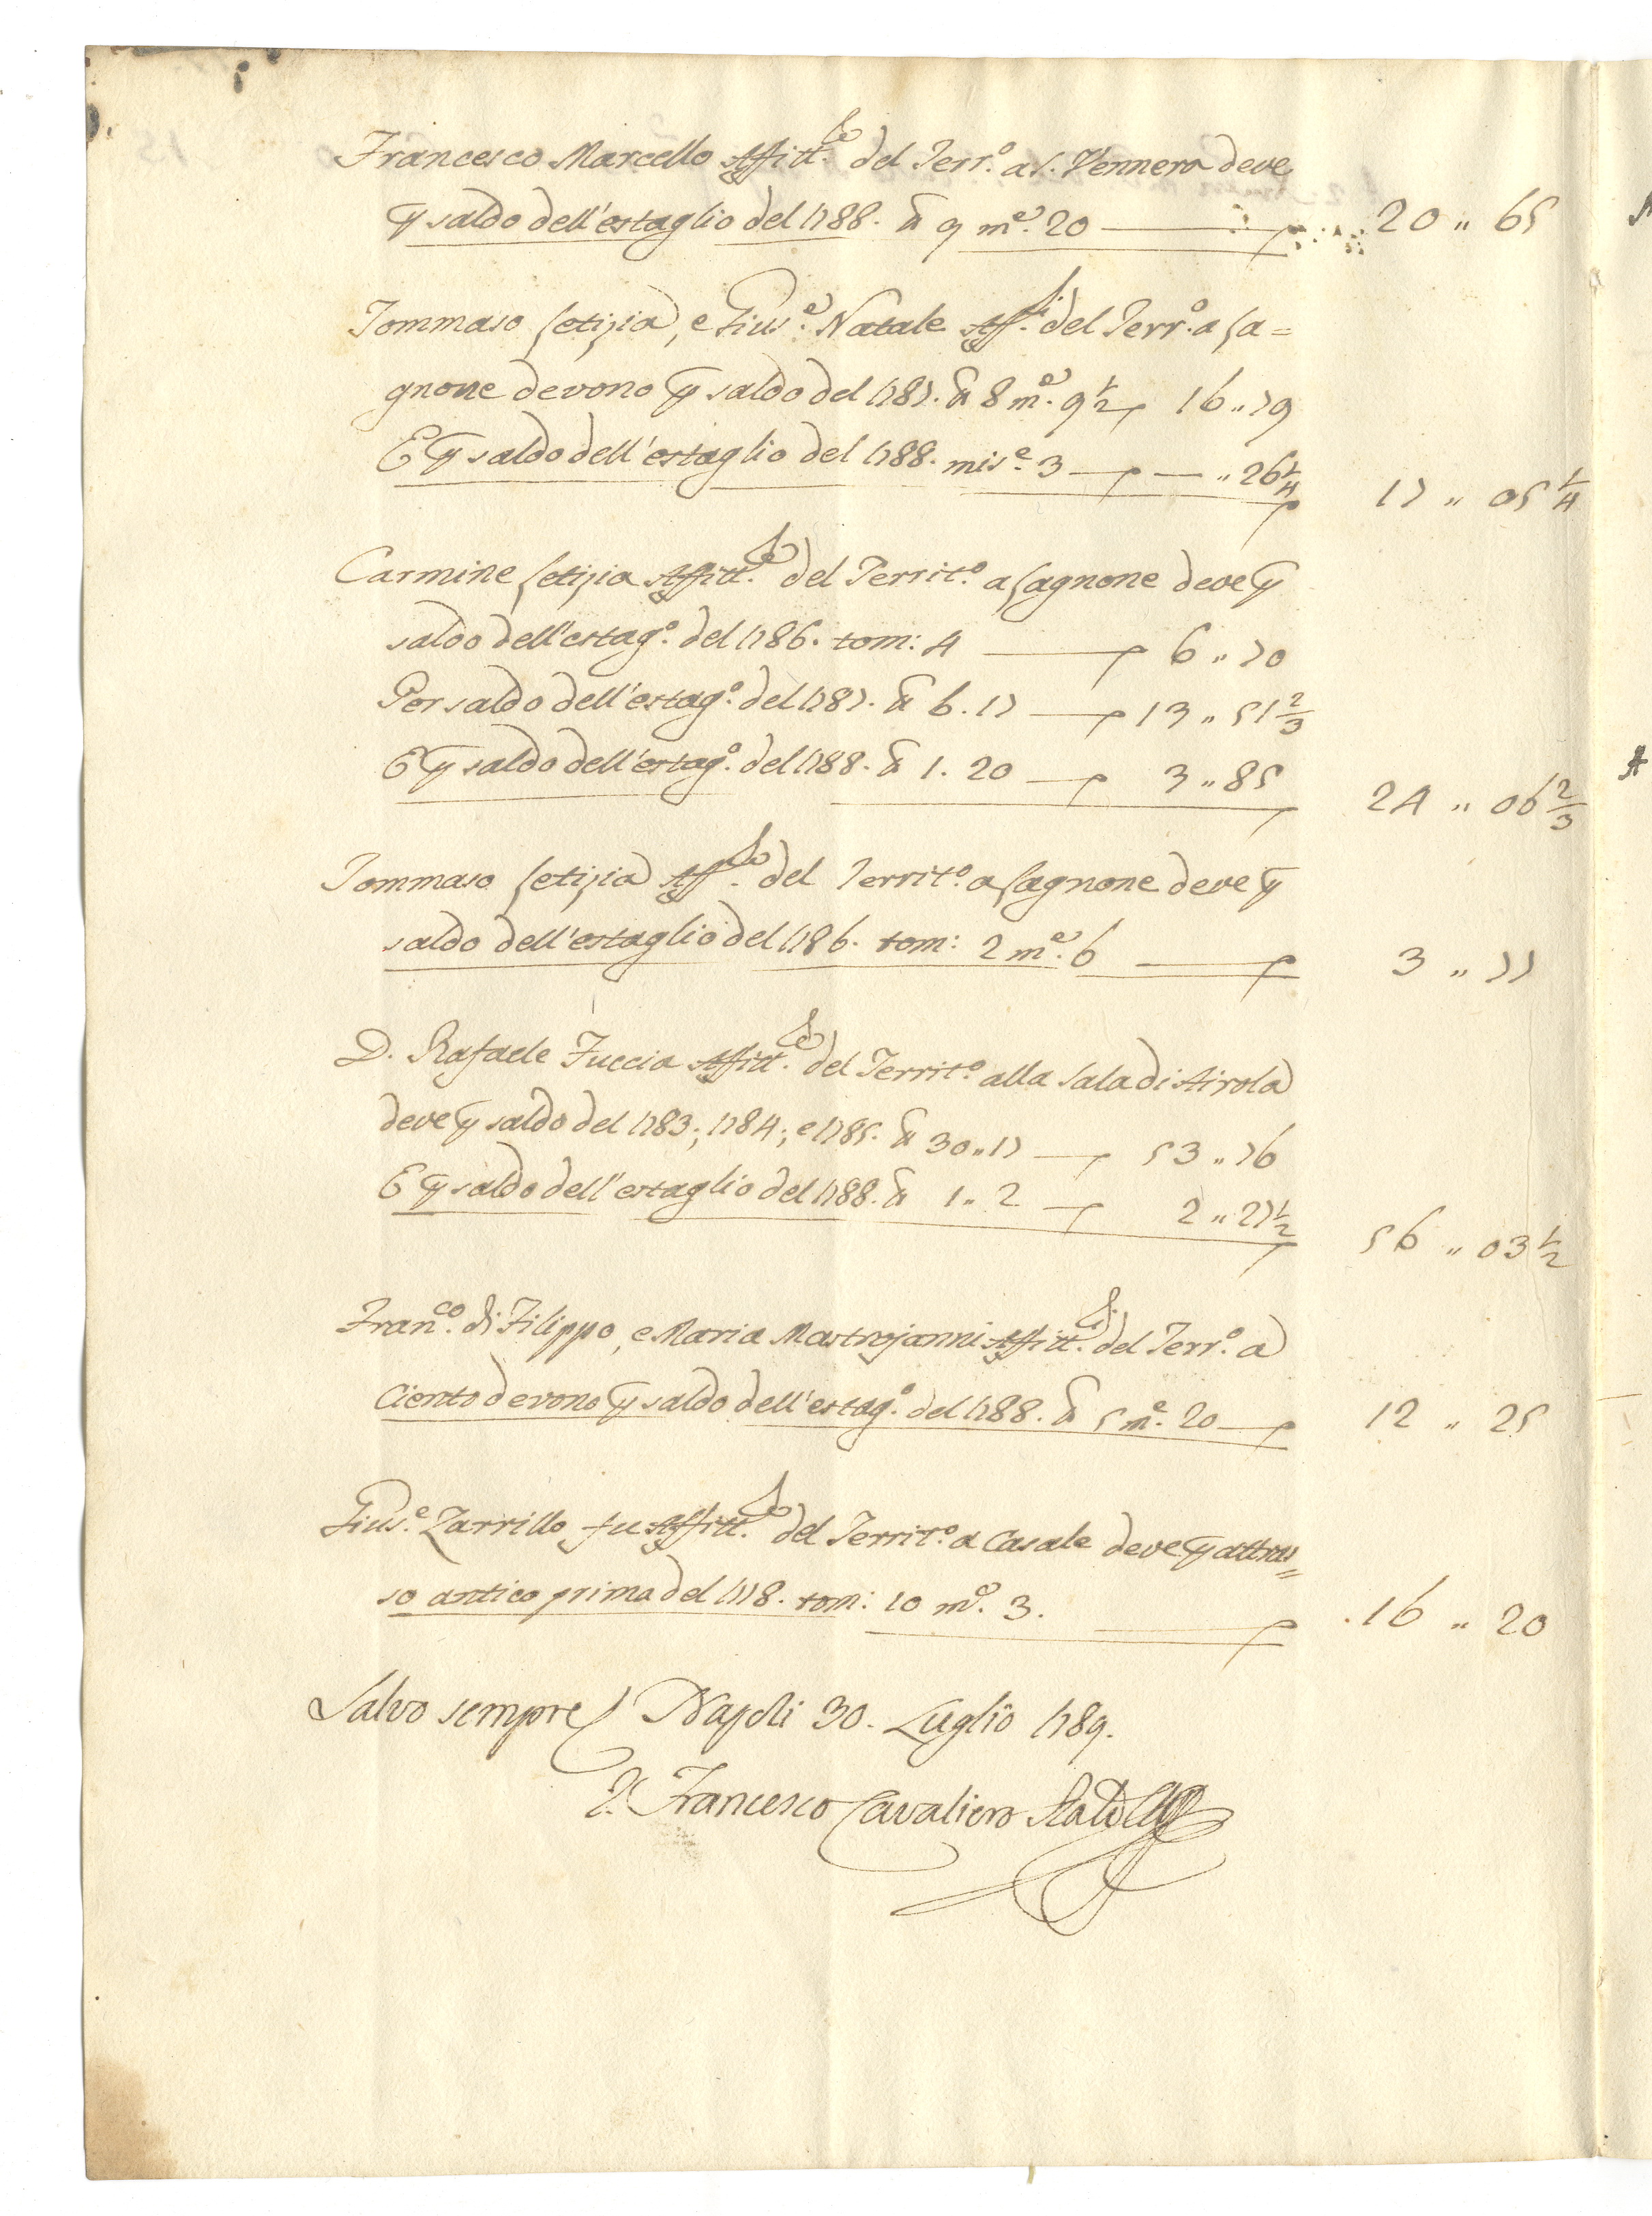 Francesco Marcello Affitt.re del Terr.o a S. Vennera deve
p saldo dell'estaglio del 1788. tt 9 m.e 20 — 20 " 65
Tommaso Letizia, e Gius.e Natale Aff.ri del Terr.o a La=
gnone devono p saldo del 1787. tt 8 m.e 9 1/2 16 " 79
E p saldo dell'estaglio del 1788. mis.e 3 — — " 26 1/4 17 " 05 1/4
Carmine Letizia Affitt.re del Territ.o a Lagnone deve p
saldo dell'estag.o del 1786. tom: 4 — 6 " 70
Per saldo dell'estag.o del 1787. tt 6. 17 — 13 " 51 2/3
E p saldo dell'estag.o del 1788. tt 1. 20 — 3 " 85 24 " 06 2/3
Tommaso Letizia Aff.re del Territ.o a Lagnone deve p
saldo dell'estaglio del 1786. tom: 2 m.e 6 — 3 " 77
D. Rafaele Fuccia Affitt.re del Territ.o alla Sala di Airola
deve p saldo del 1783; 1784; e 1785. tt 30 " 17 — 53 " 76
E p saldo dell'estaglio del 1788. tt 1 " 2 — 2 " 27 1/2 56 " 03 1/2
Fran.co di Filippo, e Maria Mastrojanni Affitt.ri del Terr.o a
Ciento devono p saldo dell'estag.o del 1788. tt 5 m.e 20 — 12 " 25
Gius.e Zarrillo fu Affitt.re del Territ.o a Casale deve p attras=
so antico prima del 1778. tom: 10 m.e 3. — 16 " 20
Salvo sempre Napoli 30. Luglio 1789.
Francesco Cavaliero